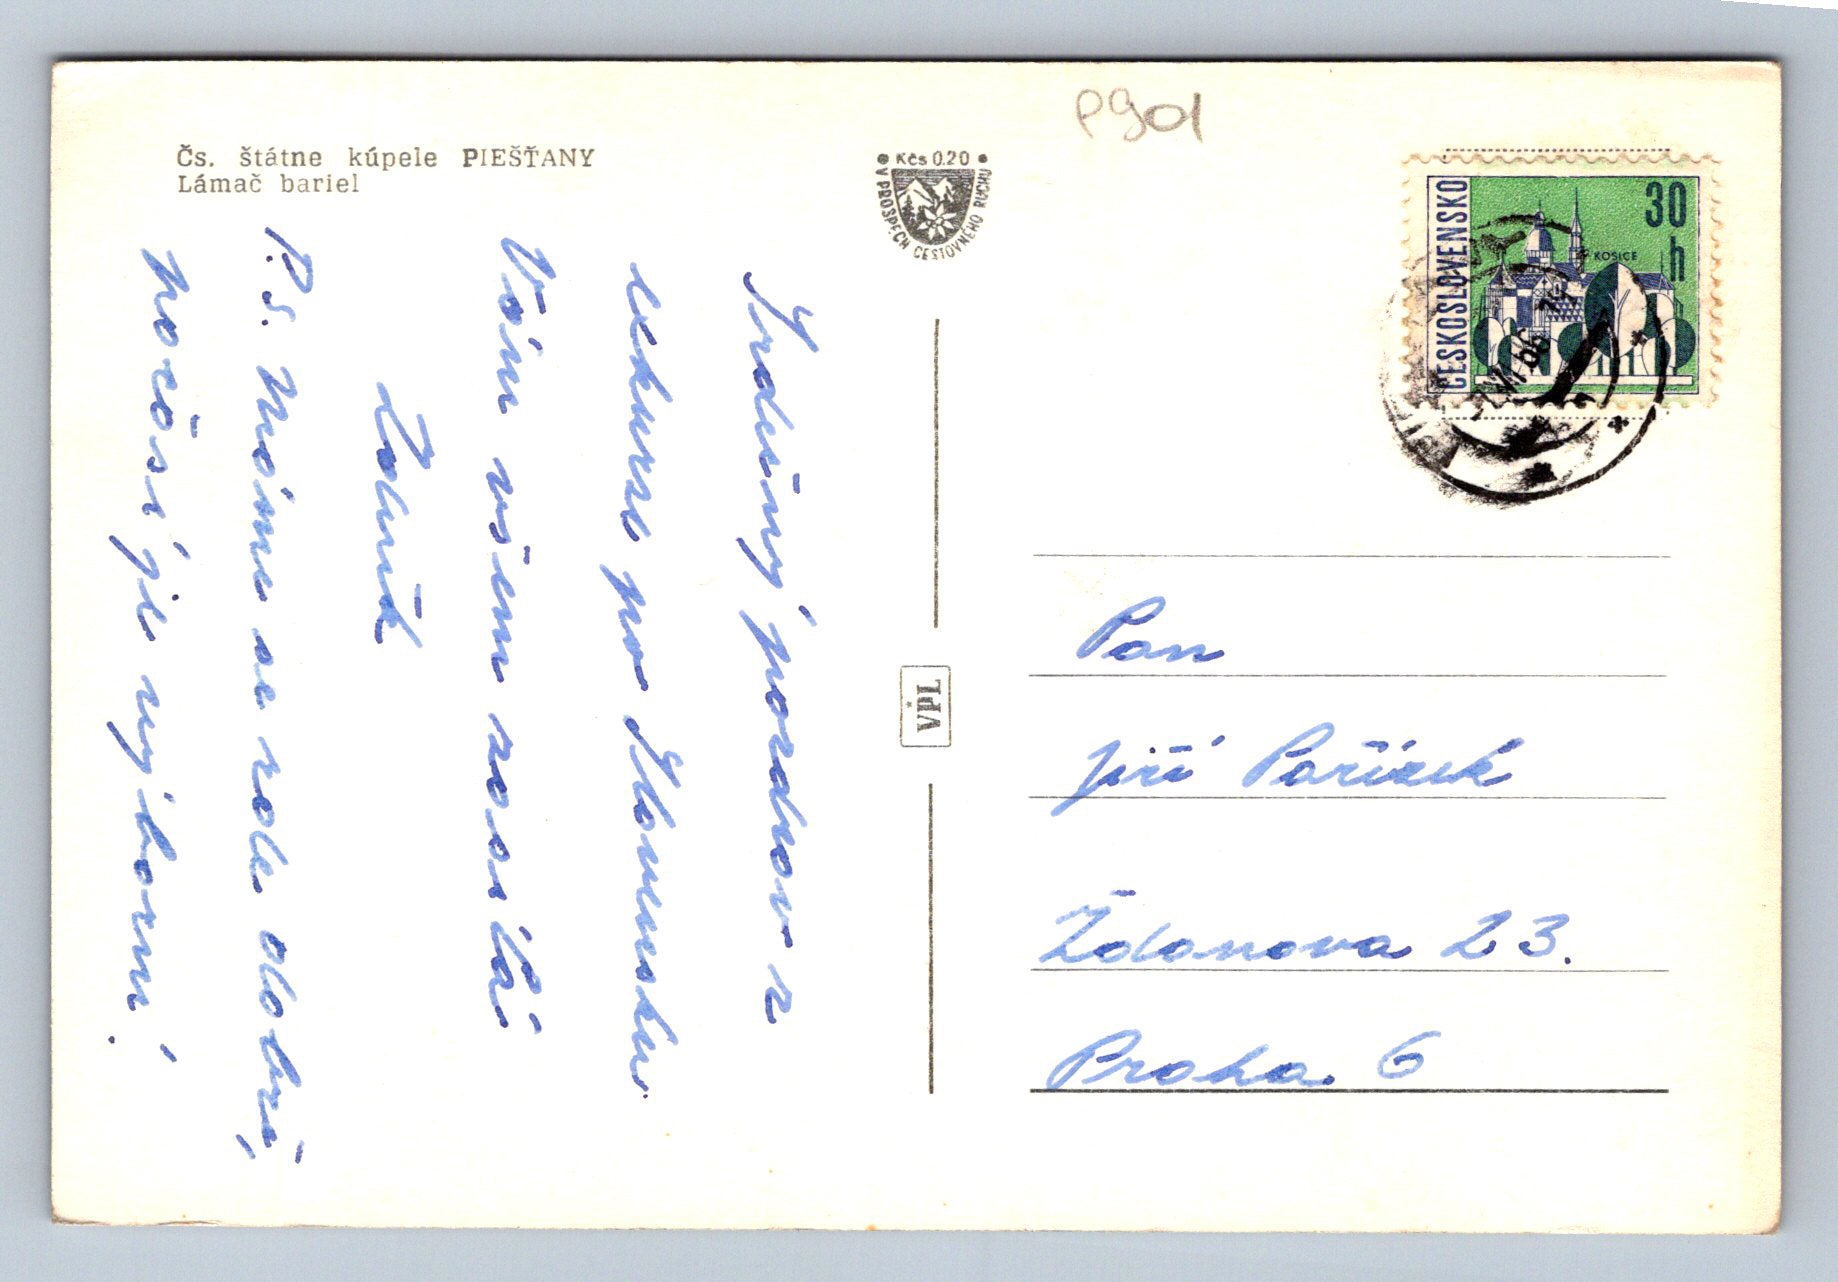 Čs. štátne kúpele PIEŠŤANY
Lámač bariel
Kčs 0.20
V PROSPECH CESTOVNÉHO RUCHU
P901
ČESKOSLOVENSKO
30
h
KOŠICE
Srdečný pozdrav z
exkurse po Slovensku
Vám všem zasílá
Zdeněk
P.S. Máme se zde dobře,
počasí je výborné!
VPL
Pan
Jiří Pařízek
Ždanova 23.
Praha 6